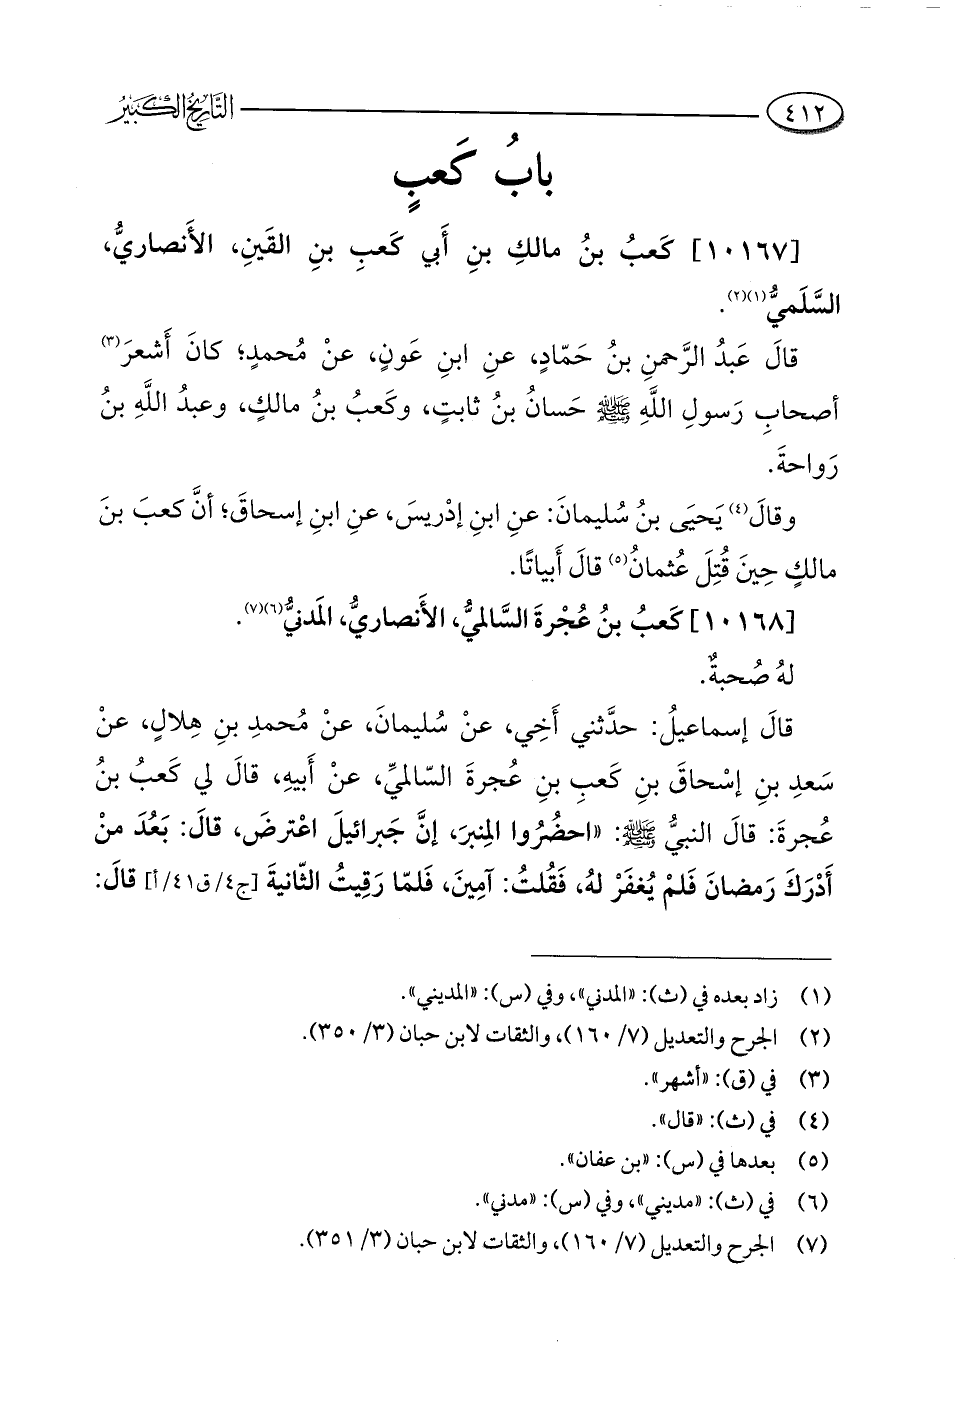 ٤١٢ التاريخ الكبير
بابُ كَعبٍ
[١٠١٦٧] كَعبُ بنُ مالكِ بنِ أَبي كَعبِ بنِ القَينِ، الأَنصاريُّ،
السَّلَميُّ(١)(٢).
قالَ عَبدُ الرَّحمنِ بنُ حَمّادٍ، عنِ ابنِ عَونٍ، عنْ مُحمدٍ؛ كانَ أَشعرَ(٣)
أصحابِ رَسولِ اللَّهِ ﷺ حَسانُ بنُ ثابتٍ، وكَعبُ بنُ مالكٍ، وعبدُ اللَّهِ بنُ
رَواحةَ.
وقالَ(٤) يَحيَى بنُ سُليمانَ: عنِ ابنِ إدْريسَ، عنِ ابنِ إسحاقَ؛ أنَّ كعبَ بنَ
مالكٍ حِينَ قُتِلَ عُثمانُ(٥) قالَ أَبياتًا.
[١٠١٦٨] كَعبُ بنُ عُجْرةَ السَّالميُّ، الأَنصاريُّ، المَدنيُّ(٦)(٧).
لهُ صُحبةٌ.
قالَ إسماعيلُ: حدَّثني أَخِي، عنْ سُليمانَ، عنْ مُحمدِ بنِ هِلالٍ، عنْ
سَعدِ بنِ إسْحاقَ بنِ كَعبِ بنِ عُجرةَ السّالميِّ، عنْ أَبيهِ، قالَ لي كَعبُ بنُ
عُجرةَ: قالَ النبيُّ ﷺ: «احضُرُوا المِنبرَ، إنَّ جَبرائيلَ اعْترضَ، قالَ: بَعُدَ منْ
أَدْرَكَ رَمضانَ فَلمْ يُغفَرْ لهُ، فَقُلتُ: آمِينَ، فَلمّا رَقِيتُ الثّانيةَ [ج٤/ق٤١/أ] قالَ:
(١) زاد بعده في (ث): «المدني»، وفي (س): «المديني».
(٢) الجرح والتعديل (٧/ ١٦٠)، والثقات لابن حبان (٣/ ٣٥٠).
(٣) في (ق): «أشهر».
(٤) في (ث): «قال».
(٥) بعدها في (س): «بن عفان».
(٦) في (ث): «مديني»، وفي (س): «مدني».
(٧) الجرح والتعديل (٧/ ١٦٠)، والثقات لابن حبان (٣/ ٣٥١).